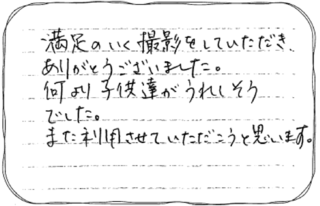 満足のいく撮影をしていただき、
ありがとうございました。
何より子供達がうれしそう
でした。
また利用させていただこうと思います。